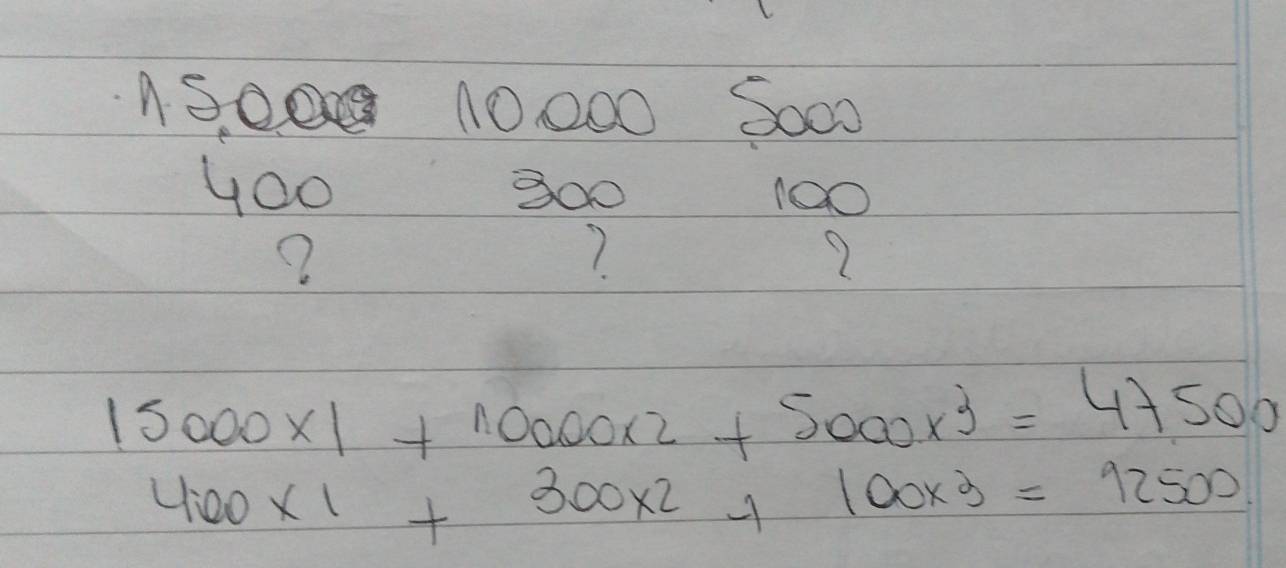 15.000 10.000 5000
400 300 100
? ? ?
15000x1 + 10000x2 + 5000x3 = 47500
400x1 + 300x2 + 100x3 = 12500